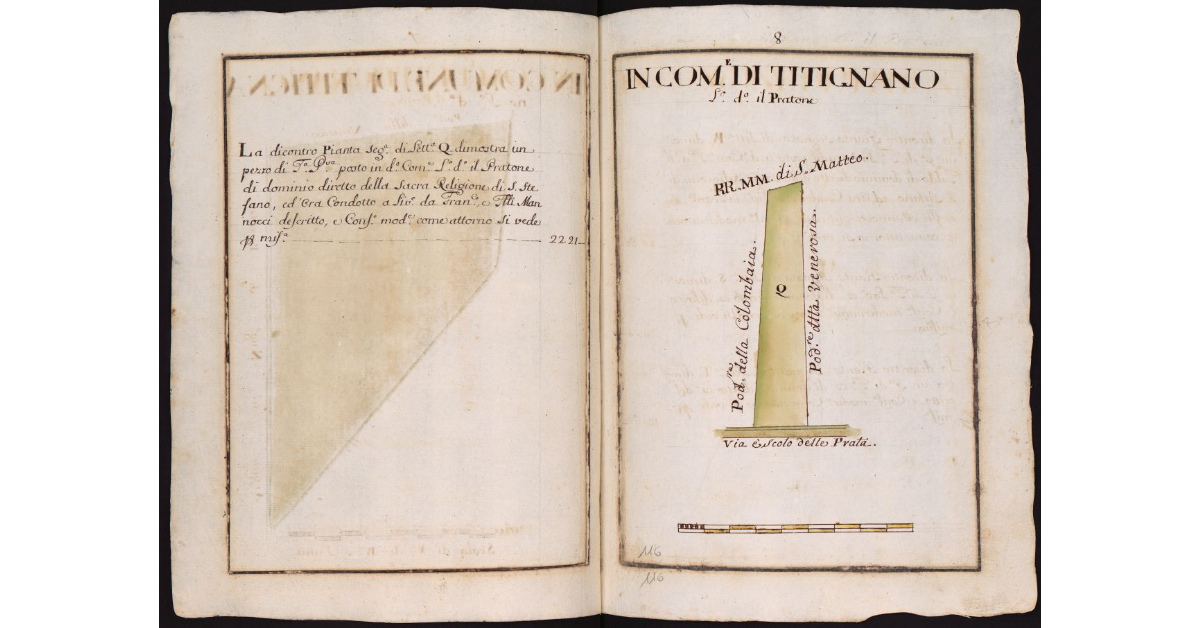 La dicontro Pianta seg.ta di Lett.a Q dimostra un
pezzo di T.a P.va posto in d.o Com.e L.o d.o il Pratone
di dominio diretto della Sacra Religione di S. Ste
fano, ed Ora Condotto a Liv.o da Fran.co, e Man
nocci descritto, e Conf.o mod.o come attorno si vede
mis.a 2221
8
IN COM.E DI TITIGNANO
L.o d.o il Pratone
RR. MM. di S. Matteo.
Pod.re della Colombaia.
Q
Pod.re dtta Venerosa.
Via e Scolo delle Prata.
116
116